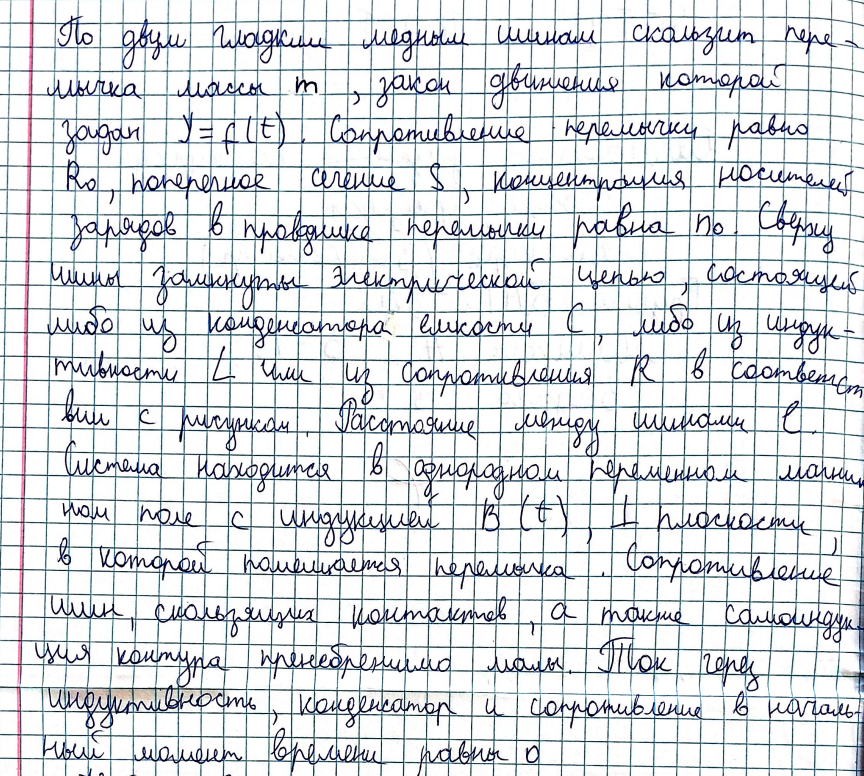 По двум гладким медным шинам скользит пере-
мычка массы m, закон движения которой
задан y=f(t). Сопротивление перемычки равно
R₀, поперечное сечение S, концентрация носителей
зарядов в проводнике перемычки равна n₀. Сверху
шины замкнуты электрической цепью, состоящей
либо из конденсатора емкости C, либо из индук-
тивности L или из сопротивления R в соответст
вии с рисунком. Расстояние между шинами l.
Система находится в однородном переменном магнит
ном поле с индукцией B(t), ⊥ плоскости,
в которой помещается перемычка. Сопротивление
шин, скользящих контактов, а также самоиндук-
ция контура пренебрежимо малы. Ток через
индуктивность, конденсатор и сопротивление в началь-
ный момент времени равны 0